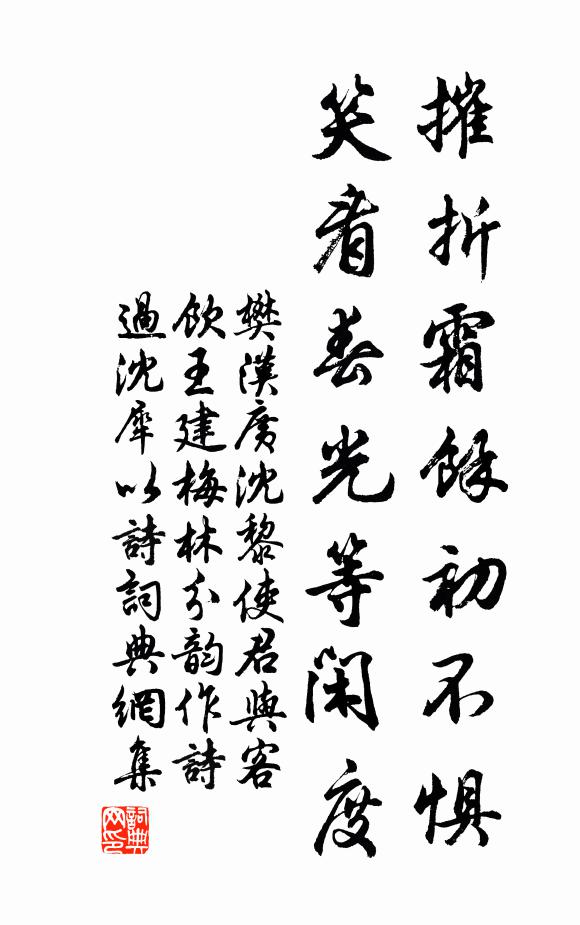 摧折霜餘初不懼
笑看春光等閑度
樊漢廣沈黎使君與客
飲王建梅林分韵作詩
過沈犀以詩詞典網集
詞典網印